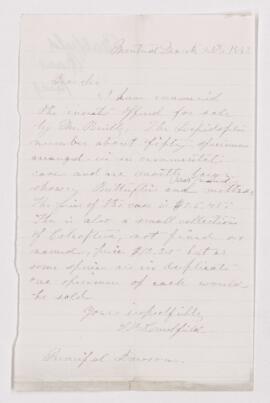 Dear Sir
I have examined
the insects offered for sale
by Mr. The Lepidoptera
number about fifty specimens
arranged in an ornamental
case and are mostly large
showy Butterflies and moths.
The price of the case is
There is also a small collection
of Coleoptera, not pinned or
named, price but as
some species are in duplicate
one specimen of each would
be sold
Yours respectfully
Principal Dawson